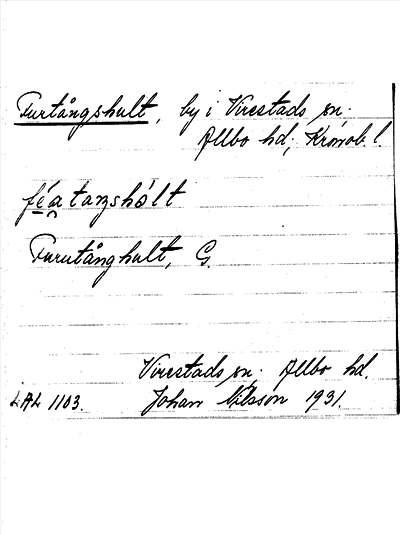 Furtångshult, by i Virestads sn.
Allbo hd; Kronob. l.
féataŋshòlt
Furutånghult, G.
Virestads sn. Allbo hd.
LAL 1103. Johan Nilsson 1931.